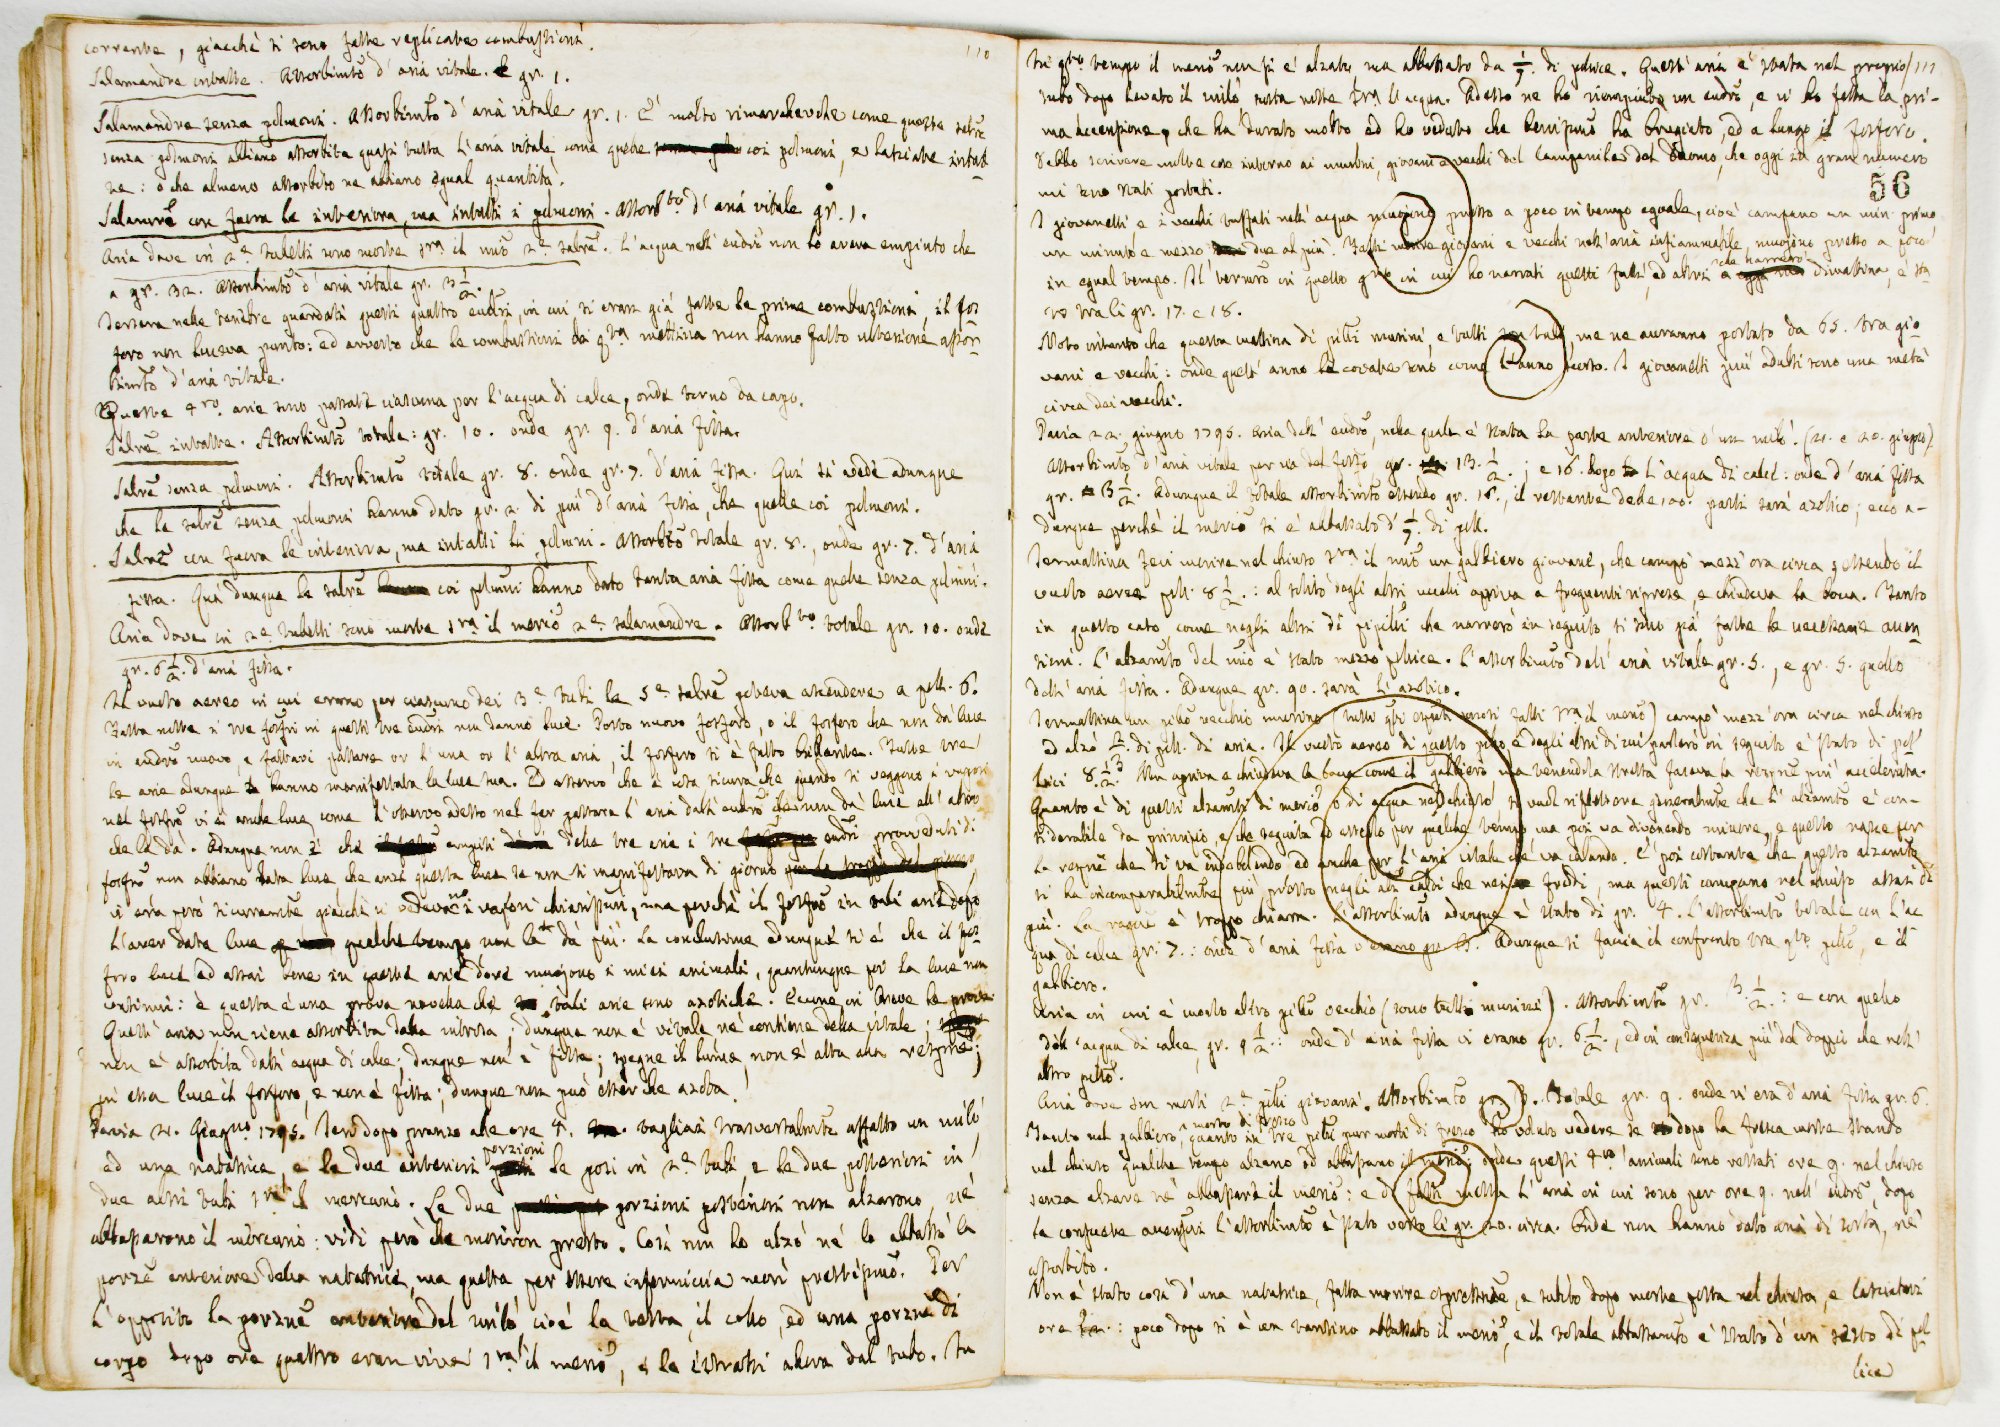 110
corrente, giacchè si sono fatte replicate combustioni.
Salamandre intatte. Assorbimto d'aria vitale. gr. 1.
Salamandre senza polmoni. Assorbimto d'aria vitale gr. 1. È molto rimarchevole come queste salre
senza polmoni abbiano assorbita quasi tutta l'aria vitale, come quelle coi polmoni, e lasciate intat
te: o che almeno assorbito ne abbiano egual quantità.
Salamre con fuora le interiora, ma intatti i polmoni. Assorbto d'aria vitale gr. 1.
Aria dove in 2e tubetti sono morte sra il mio 2e salre. L'acqua nell'eudro non lo aveva empiuto che
a gr. 32. Assorbimto d'aria vitale gr. 3 1/2.
Stassera nelle tenebre guardati questi quattro eudri, in cui si eran già fatte le prime combustioni, il fos
foro non luceva punto: ed avverto che le combustioni di qta mattina non hanno fatto ulteriore assor
bimto d'aria vitale.
Queste 4ro arie sono passate ciascuna per l'acqua di calce, onde torno da capo.
Salre intatte. Assorbimto totale: gr. 10. onde gr. 9. d'aria fissa.
Salre senza polmoni. Assorbimto totale gr. 8. onde gr. 7. d'aria fissa. Qui si vede adunque
che le salre senza polmoni hanno dato gr. 2. di più d'aria fissa, che quelle coi polmoni.
Salre con fuora le interiora, ma intatti li polmoni. Assorbto totale gr. 8., onde gr. 7. d'aria
fissa. Qui dunque le salre coi polmoni hanno dato tanta aria fissa come quelle senza polmoni.
Aria dove in 2e tubetti sono morte sra il merco 2e salamandre. Assorbto totale gr. 10. onde
gr. 6 1/2. d'aria fissa.
Il vuoto aereo in cui erano per ciascuno dei 3e tubi le 5e salre poteva ascendere a poll. 6.
Fatta notte i tre fosfori in questi tre eudri non danno luce. Posto nuovo fosforo, o il fosforo che non dà luce
in eudro nuovo, e fattavi passare or l'una or l'altra aria, il fosforo si è fatto brillante. Tutte tre
le arie adunque hanno manifestata la luce sua. Ed osservo che è cosa sicura che quando si veggono i vapori
nel fosfro vi è anche luce come l'osservo adesso nel far passare l'aria dall'eudro che non dà luce all'altro
che la dà. Adunque non è che empiti delle tre arie i tre eudri provveduti di
fosfro non abbiano data luce, che anzi questa luce se non si manifestava di giorno
vi era però sicuramte giacchè si vedevano i vapori chiarissimi, ma perchè il fosfro in tali arie dopo
l'aver data luce qualche tempo non la dà più. La conclusione adunque si è che il fos
foro luce ed assai bene in queste arie dove muojono i miei animali, quantunque poi la luce non
continui: e questa è una prova novella che tali arie sono azotiche. Eccone in breve le prove.
Quest'aria non viene assorbita dalla nitrosa; dunque non è vitale nè contiene della vitale;
non è assorbita dall'acqua di calce; dunque non è fissa; spegne il lume, non è atta alla respne;
in essa luce il fosforo, e non è fissa; dunque non può esser che azota.
Pavia 21. Giugno 1795. Ieri dopo pranzo alle ore 4. tagliai trasversalmte affatto un milò,
ed una natatrice, e le due anteriori porzioni le posi in 2e tubi e le due posteriori in
due altri tubi sra il mercurio. Le due porzioni posteriori non alzarono, nè
abbassarono il mercurio: vidi però che morivan presto. Così non lo alzò nè lo abbassò la
porzne anteriore della natatrice, ma questa per essere infermiccia morì prestissimo. Per
l'opposito la porzne anteriore del milò cioè la testa, il collo, ed una porzne di
corpo dopo ore quattro eran vive sra il merco, e le estrassi allora dal tubo. In
111
tal qto tempo il merco non si è alzato, ma abbassato da 1/7. di pollice. Quest'aria è stata nel proprio
tubo dopo levato il milò tutta notte sra l'acqua. Adesso ne ho riempiuto un eudro, e vi ho fatta la pri-
ma accensione, che ha durato molto ed ho veduto che benissimo ha bruciato, ed a lungo il fosforo.
Debbo scrivere molte cose intorno ai murini, giovani e vecchi del Campanile del Duomo, che oggi in gran numero
mi sono stati portati.
56
I giovanetti e i vecchi tuffati nell'acqua muojono presso a poco in tempo eguale, cioè campano un min. primo
un minuto e mezzo due al più. Fatti morire giovani e vecchi nell'aria infiammabile, muojono presso a poco
in egual tempo. Il termro in quello gno in cui ho narrati questi fatti, ed altri che narrerò dimattina, è sta
to tra li gr. 17. e 18.
Noto intanto che questa mattina di pilti murini, e tutti me ne avranno portato da 65. tra gio
vani e vecchi: onde quest'anno le covate sono come l'anno scorso. I giovanetti più adulti sono una metà
circa dei vecchi.
Pavia 22. giugno 1795. Aria dell'eudro, nella quale è stata la parte anteriore d'un milò. (21. e 20. giugno)
Assorbimto d'aria vitale per via del fosfo, gr. 13. 1/2.; e 16. dopo l'acqua di calce: onde d'aria fissa
gr. 3 1/2. Adunque il totale assorbimto essendo gr. 16., il restante delle 100. parti sarà azotico; ecco a-
dunque perchè il merco si è abbassato d'1/7. di poll.
Sermattina feci morire nel chiuso sra il mio un galbiero giovane, che campò mezz'ora circa, essendo il
vuoto aereo poll. 8 1/2.: al solito degli altri uccelli apriva a frequenti riprese, e chiudeva la bocca. Tanto
in questo caso come negli altri di pipilli che narrerò in seguito si sono già fatte le necessarie avver
sioni. L'alzamto del mio è stato mezzo pollice. L'assorbimto dell'aria vitale gr. 5., e gr. 5. quello
dell'aria fissa. Adunque gr. 90. sarà l'azotico.
Sermattina un pilto vecchio murino (tutti gli esperti vansi fatti sra il merco) campò mezz'ora circa nel chiuso
ed alzò 2/3. di poll. di aria. Il vuoto aereo di questo pilto, e degli altri di cui parlerò in seguito è stato di pol
lici 8. 1/2. Ma apriva e chiudeva la bocca come il galbiero ma tenendola stretta faceva la respne più accelerata.
Quanto è di questi alzamti di merco o di acqua nel chiuso si vuol riflettere generalmte che l'alzamto è con-
siderabile da principio, e che seguita ad esserlo per qualche tempo ma poi va divenendo minore, e questo nasce per
la respne che si va indebolendo ed anche per l'aria vitale che va calando. È poi costante che questo alzamto
si ha incomparabilmte più presto negli ali caldi che nei freddi, ma questi campano nel chiuso assai di
più. La ragne è troppo chiara. L'assorbimto adunque è stato di gr. 4. L'assorbimto totale con l'ac
qua di calce gr. 7.: onde d'aria fissa v'erano gr. 3. Adunque si faccia il confronto tra qto pilto, e il
galbiero.
Aria in cui è morto altro pilto vecchio (sono tutti murini). Assorbimto gr. 3. 1/2.: e con quello
dell'acqua di calce, gr. 9 1/2.: onde d'aria fissa vi erano gr. 6 1/2., ed in conseguenza più del doppio che nell'
altro pilto.
Aria dove son morti 2e pilti giovani. Assorbimto gr. 3. Totale gr. 9. onde vi era d'aria fissa gr. 6.
Tanto nel galbiero, morto di fresco quanto in tre pilti pur morti di fresco ho voluto vedere se dopo la fresca morte stando
nel chiuso qualche tempo alzano od abbassano il merco; onde questi 4ro animali sono restati ore 9. nel chiuso
senza alzare nè abbassare il merco: e di fatti messa l'aria in cui sono per ore 9. nell'eudro, dopo
le consuete avvertni l'assorbimto è stato verso li gr. 20. circa. Onde non hanno dato aria di sorta, nè
assorbito.
Non è stato così d'una natatrice, fatta morire, e subito dopo morte posta nel chiuso, e lasciatavi
ore: poco dopo si è un tantino abbassato il merco, e il totale abbassamto è stato d'un sesto di pol
lice